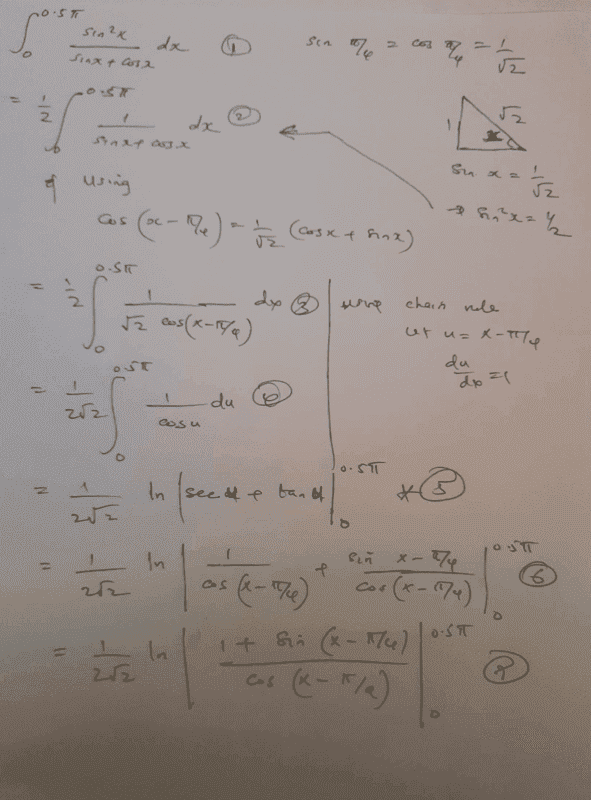 ∫₀^0.5π sin²x / (sinx + cosx) dx ①
sin π/4 = cos π/4 = 1/√2
= 1/2 ∫₀^0.5π 1 / (sinx + cosx) dx ②
1 √2 x
sin x = 1/√2
→ sin²x = 1/2
using
cos (x - π/4) = 1/√2 (cosx + sinx)
= 1/2 ∫₀^0.5π 1 / (√2 cos(x-π/4)) dx ③
chain rule
let u = x - π/4
du/dx = 1
= 1/2√2 ∫₀^0.5π 1/cosu du
= 1/2√2 ln |sec u + tan u| |₀^0.5π * ⑤
= 1/2√2 ln | 1 / cos (x - π/4) + sin x - π/4 / cos (x - π/4) | |₀^0.5π ⑥
= 1/2√2 ln | 1 + sin (x - π/4) / cos (x - π/4) | |₀^0.5π